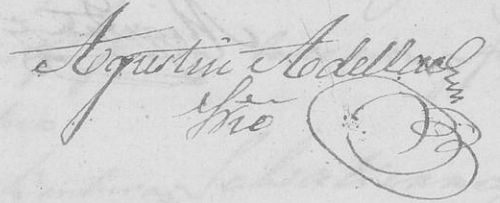 Agustin Adellac
Srio